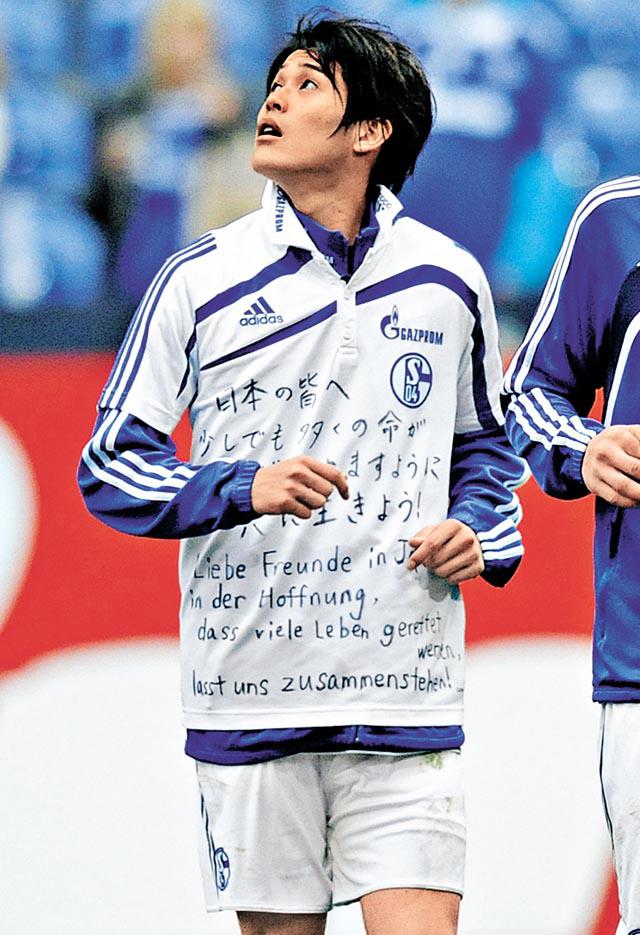 GAZPROM
adidas
GAZPROM
S
04
日本の皆へ
少しでも多くの命が
ますように
に生きよう!
Liebe Freunde in
in der Hoffnung,
dass viele Leben gerettet
werden,
lasst uns zusammenstehen!